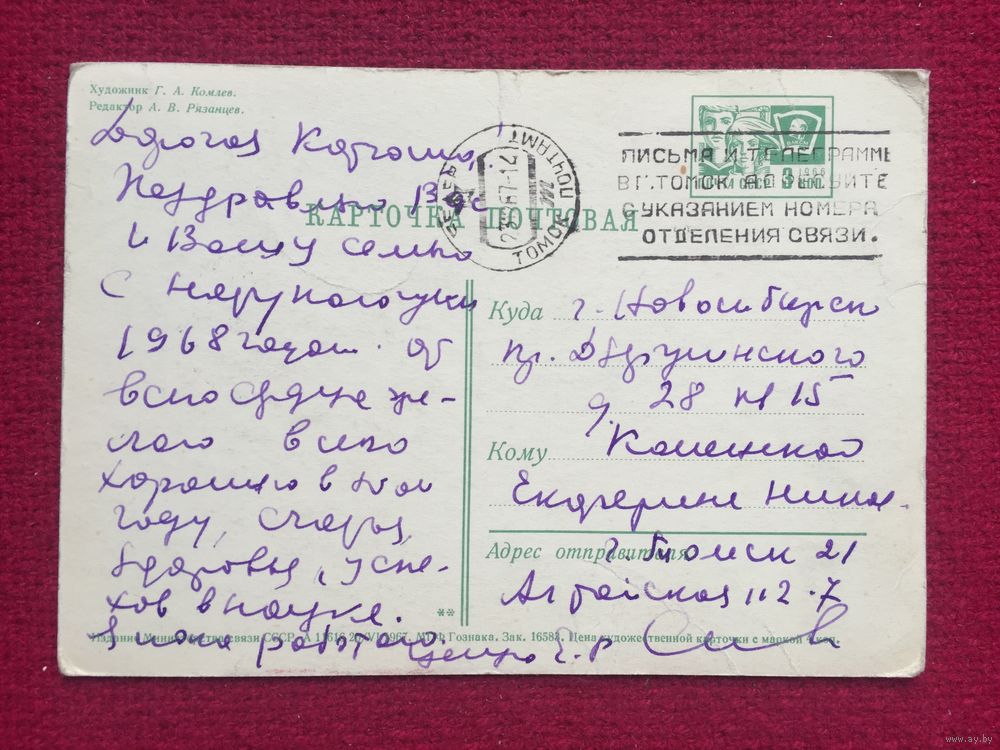 Художник Г. А. Комлев.
Редактор А. В. Рязанцев.
Дорогая Катюша!
Поздравляю Вас
и Вашу семью
с наступающим
1968 годом. От
всего сердца же-
лаю всего
хорошего в новом
году, счастья,
здоровья, успе-
хов в науке.
КАРТОЧКА ПОЧТОВАЯ
ТОМСК ПОЧТАМТ
ПОЧТА СССР 1966
3 КОП.
ПИСЬМА И ТЕЛЕГРАММЫ
В Г. ТОМСК АДРЕСУЙТЕ
С УКАЗАНИЕМ НОМЕРА
ОТДЕЛЕНИЯ СВЯЗИ.
Куда г. Новосибирск
пр. Дзержинского
д. 28 кв 15
Кому Каменской
Екатерине Никол.
Адрес отправителя г. Томск 21
Алтайская 112-7
**
Издание Министерства связи СССР. А 11616 20/VI 1967. МПФ Гознака. Зак. 16583. Цена художественной карточки с маркой 4 коп.
работаю
www.ay.by